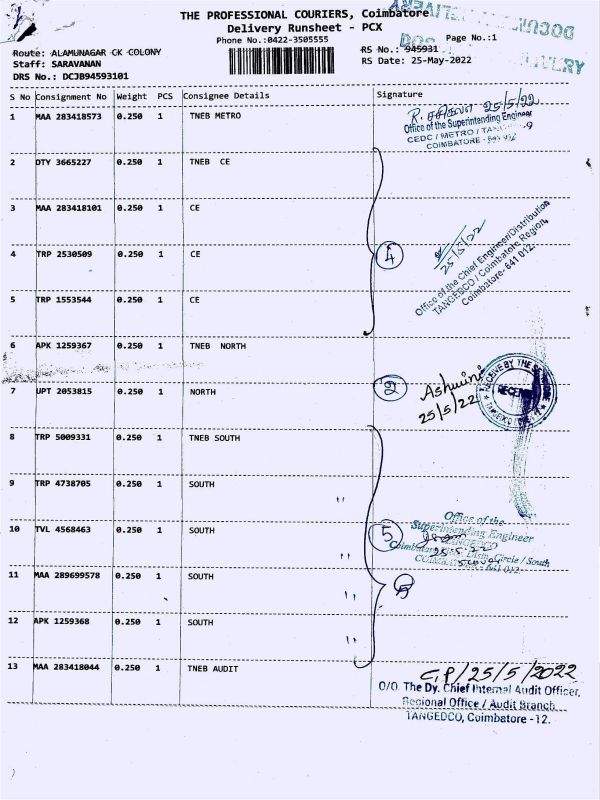 THE PROFESSIONAL COURIERS, Coimbatore
Delivery Runsheet - PCX
Phone No.:0422-3505555
Page No.:1
Route: ALAMUNAGAR CK COLONY
Staff: SARAVANAN
DRS No.: DCJB94593101
RS No.: 945931
RS Date: 25-May-2022
S No Consignment No Weight PCS Consignee Details Signature
1 MAA 283418573 0.250 1 TNEB METRO
25/5/22
Office of the Superintending Engineer
CEDC / METRO /
COIMBATORE -
2 DTY 3665227 0.250 1 TNEB CE
3 MAA 283418101 0.250 1 CE
4 TRP 2530509 0.250 1 CE
4
25/5/22
Office of the Chief Engineer/Distribution
TANGEDCO / Coimbatore Region,
Coimbatore- 641 012.
5 TRP 1553544 0.250 1 CE
6 APK 1259367 0.250 1 TNEB NORTH
7 UPT 2053815 0.250 1 NORTH
2
Ashwini
25/5/22
8 TRP 5009331 0.250 1 TNEB SOUTH
9 TRP 4738705 0.250 1 SOUTH
10 TVL 4568463 0.250 1 SOUTH
5
Office of the
Superintending Engineer
TANGEDCO
Circle / South
11 MAA 289699578 0.250 1 SOUTH
12 APK 1259368 0.250 1 SOUTH
13 MAA 283418044 0.250 1 TNEB AUDIT
25/5/2022
O/O. The Dy. Chief Internal Audit Officer,
Regional Office / Audit Branch
TANGEDCO, Coimbatore - 12.